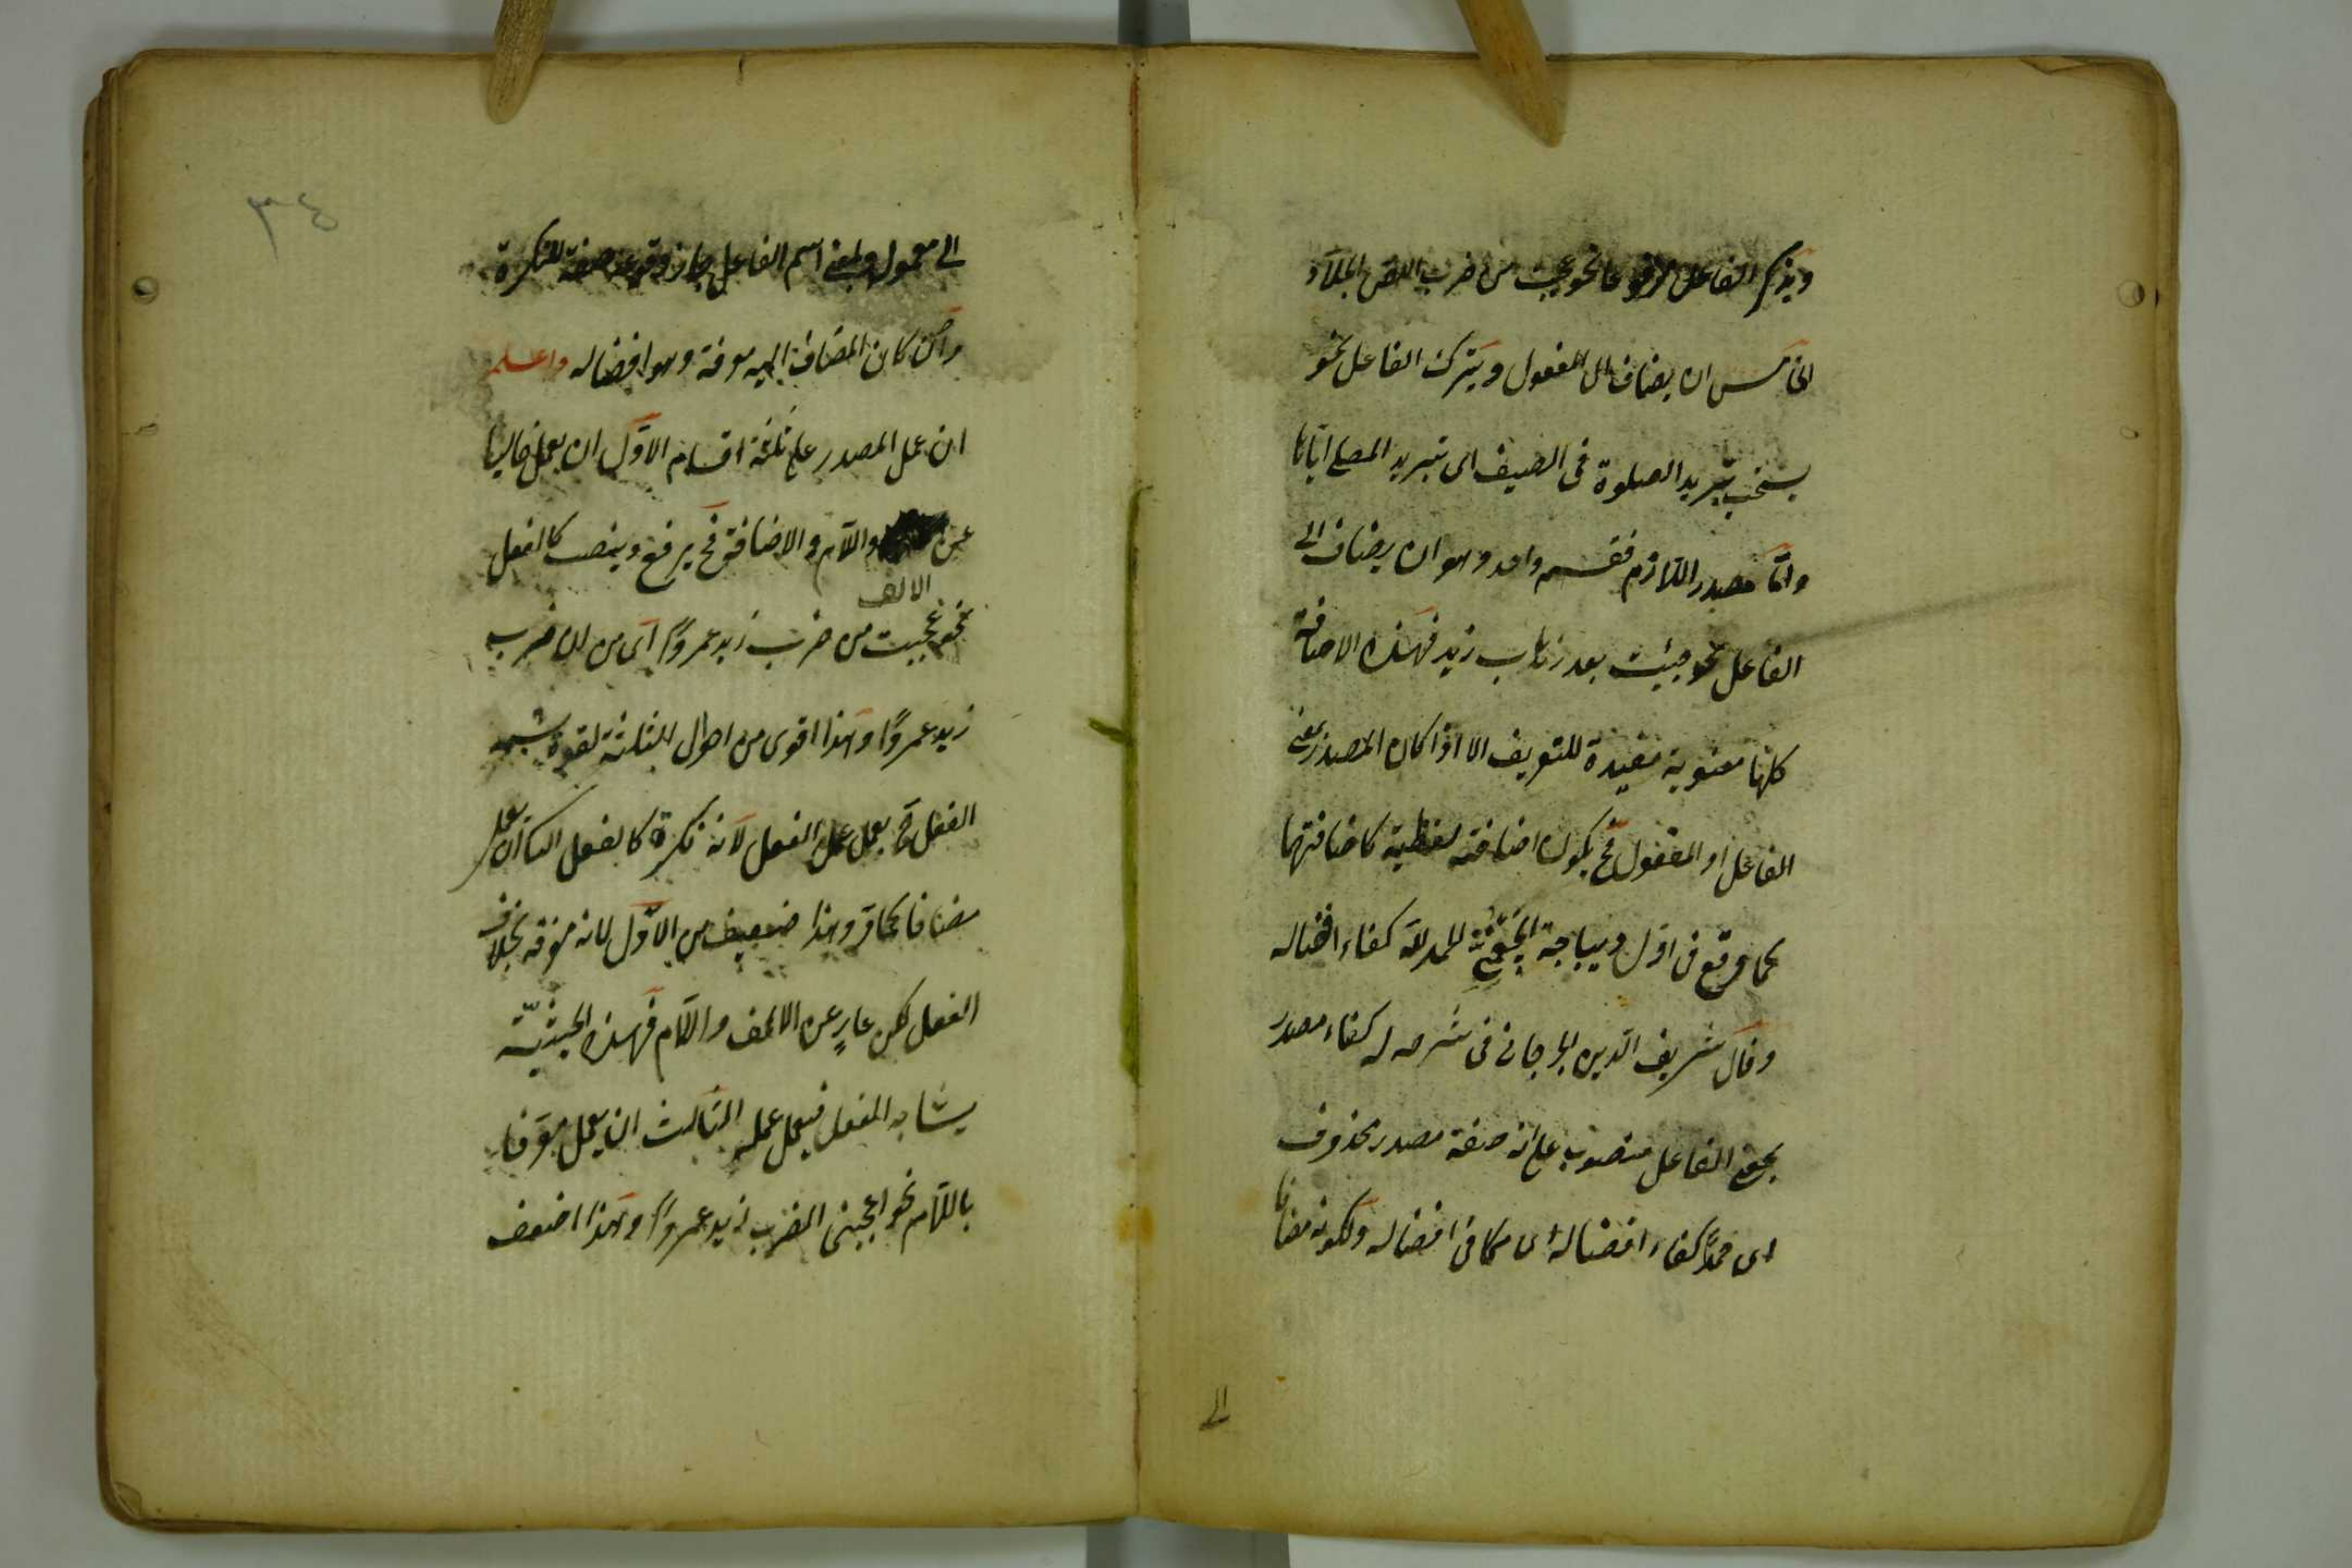 ويذكر الفاعل مرفوعا نحو عجبت من ضرب اللص الجلاد
الخامس ان يضاف الى المفعول ويترك الفاعل نحو
يستحب تبريد الصلوة فى الصيف اى تبريد المصلى اياها
واما مصدر اللازم فقسم واحد وهو ان يضاف الى
الفاعل نحو جيئت بعد ذهاب زيد فهذه الاضافة
كلها معنوية مفيدة للتعريف الا اذا كان المصدر بمعنى
الفاعل او المفعول فح يكون اضافته لفظية كاضافتهما
كما وقع فى اول ديباجة الحمد لله كفاء افضاله
وقال شريف الدين الجرجانى فى شرحه له كفاء مصدر
بمعنى الفاعل منصوب على انه صفة مصدر محذوف
اى حمدا كفاء افضاله اى مكافى افضاله ولكونه مضافا
الى
٣٤
الى معموله وبمعنى اسم الفاعل جاز وقوعه صفة للنكرة
وان كان المضاف اليه معرفة وهو افضاله واعلم
ان عمل المصدر على ثلثة اقسام الاول ان يعمل خاليا
عن واللام والاضافة فح يرفع وينصب كالفعل
الالف
نحو عجبت من ضرب زيد عمروًا اى من ان ضرب
زيد عمروًا وهذا اقوى من احوال الثلثة لقوة شبه
الفعل ح يعمل عمل الفعل لانه نكرة كالفعل الثانى ان يعمل
مضافا كما مر وهذا ضعيف من الاول لانه معرفة بخلاف
الفعل لكن عارٍ عن الالف واللام فهذه الحيثيّة
يشابه الفعل فيعمل عمله الثالث ان يعمل معرفا
باللام نحو اعجبنى الضرب زيد عمروًا وهذا اضعف